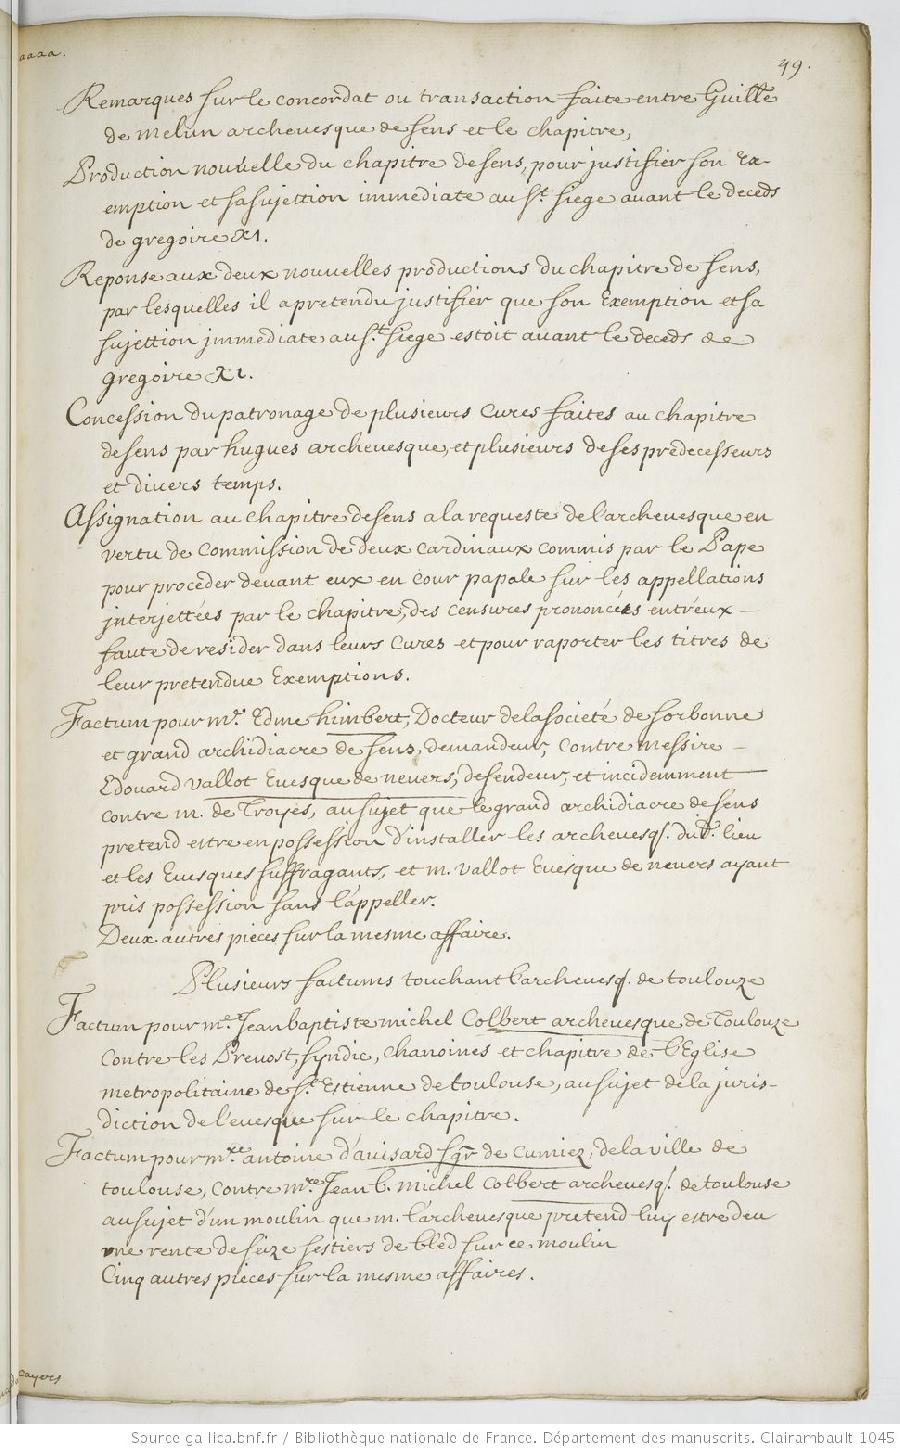 aaaa.
49.
Remarques sur le concordat ou transaction faite entre Guille
de melun archevesque de sens et le chapitre,
Production nouvelle du chapitre de sens, pour justifier son ex-
emption et sa sujettion immediate au St. siege avant le deceds
de gregoire XI.
Reponse aux deux nouvelles productions du chapitre de sens,
par lesquelles il a pretendu justifier que son Exemption et sa
sujettion jmmediate au St. siege estoit avant le deceds de
gregoire XI.
Concession du patronage de plusieurs cures faites au chapitre
de sens par hugues archevesque, et plusieurs de ses predecesseurs
et divers temps.
Assignation au chapitre de sens a la requeste de l'archevesque en
vertu de Commission de deux cardinaux commis par le Pape
pour proceder devant eux en cour papale sur les appellations
jnterjettées par le chapitre, des censures prononcées entr'eux
faute de resider dans leurs Cures et pour raporter les titres de
leur pretendue Exemptions.
Factum pour mr. Edme himbert, Docteur de la societé de sorbonne
et grand archidiacre de sens, demandeur, contre messire
Edouard vallot Evesque de nevers, defendeur, et incidemment
contre m. de Troyes, au sujet que le grand archidiacre de sens
pretend estre en possession d'installer les archevesq. dud. lieu
et les Evesques suffragants, et m. vallot Evesque de nevers ayant
pris possession sans l'appeller.
Deux autres pieces sur la mesme affaire.
Plusieurs factums touchant l'archevesq. de toulouze
Factum pour me. Jean baptiste michel Colbert archevesque de Toulouze
contre les Prevost, syndic, chanoines et chapitre de l'Eglise
metropolitaine de St. Estienne de toulouse, au sujet de la juris-
diction de l'evesque sur le chapitre.
Factum pour mre antoine d'avisard sgr de Cumiez, de la ville de
toulouse, contre mre Jean b. michel Colbert archevesq. de toulouse
au sujet d'un moulin que m. l'archevesque pretend luy estre deu
une rente de sieze sestiers de bled sur ce moulin
Cinq autres pieces sur la mesme affaires.
cayers
Source gallica.bnf.fr / Bibliothèque nationale de France. Département des manuscrits. Clairambault 1045